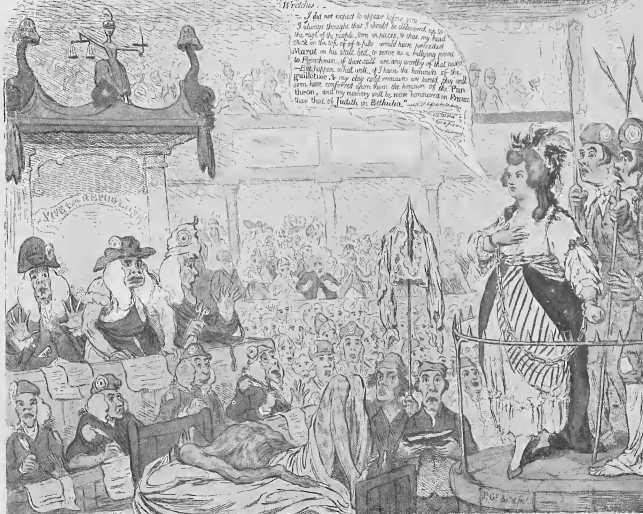 Wretches, —
— I did not expect to appear before you —
I always thought that I should be delivered up to
the rage of the people, torn in pieces, & that my head
stuck on the top of a pike would have preceded
Marat on his state bed, to serve as a rallying point
to Frenchmen, if there still are any worthy of that name
— But happen what will, if I have the honours of the
guillotine, & my clay cold remains are buried, they will
soon have conferred upon them the honours of the Pan
theon, and my memory will be more honoured in France
than that of Judith in Bethulia."
VIVE la REPUBLIQUE